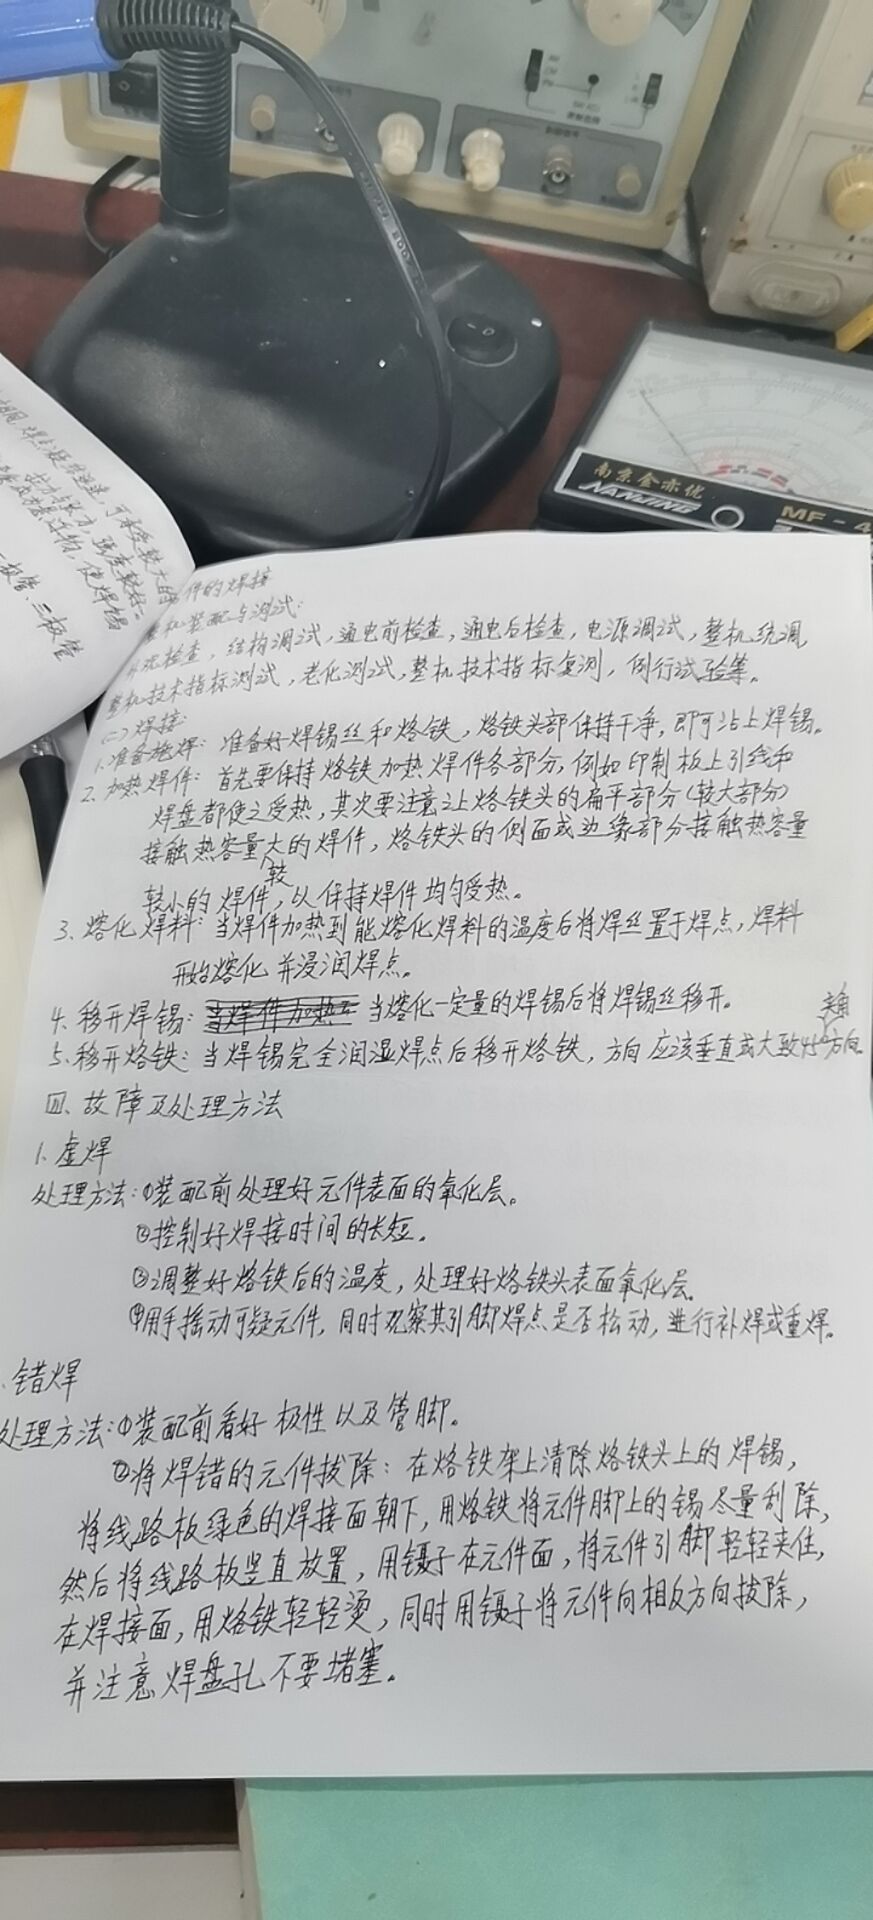 南京金亦优
NANJING
MF-4
可承受较大的
拉力与张力，强度较好。
使焊锡
极管、三极管
件的焊接
整机装配与测试：
外观检查，结构调试，通电前检查，通电后检查，电源调试，整机统调，
整机技术指标测试，老化测试，整机技术指标复测，例行试验等。
(二)焊接：
1.准备施焊：准备好焊锡丝和烙铁，烙铁头部保持干净，即可沾上焊锡。
2、加热焊件：首先要保持烙铁加热焊件各部分，例如印制板上引线和
焊盘都使之受热，其次要注意让烙铁头的扁平部分(较大部分)
接触热容量较大的焊件，烙铁头的侧面或边缘部分接触热容量
较小的焊件，以保持焊件均匀受热。
3、熔化焊料：当焊件加热到能熔化焊料的温度后将焊丝置于焊点，焊料
开始熔化并浸润焊点。
4.移开焊锡：当焊件加热 当熔化一定量的焊锡后将焊锡丝移开。
5.移开烙铁：当焊锡完全润湿焊点后移开烙铁，方向应该垂直或大致45°方向。
四、故障及处理方法
1.虚焊
处理方法：①装配前处理好元件表面的氧化层。
②控制好焊接时间的长短。
③调整好烙铁后的温度，处理好烙铁头表面氧化层。
④用手摇动可疑元件，同时观察其引脚焊点是否松动，进行补焊或重焊。
、错焊
处理方法：①装配前看好极性以及管脚。
②将焊错的元件拔除：在烙铁架上清除烙铁头上的焊锡，
将线路板绿色的焊接面朝下，用烙铁将元件脚上的锡尽量刮除，
然后将线路板竖直放置，用镊子在元件面，将元件引脚轻轻夹住，
在焊接面，用烙铁轻轻烫，同时用镊子将元件向相反方向拔除，
并注意焊盘孔不要堵塞。